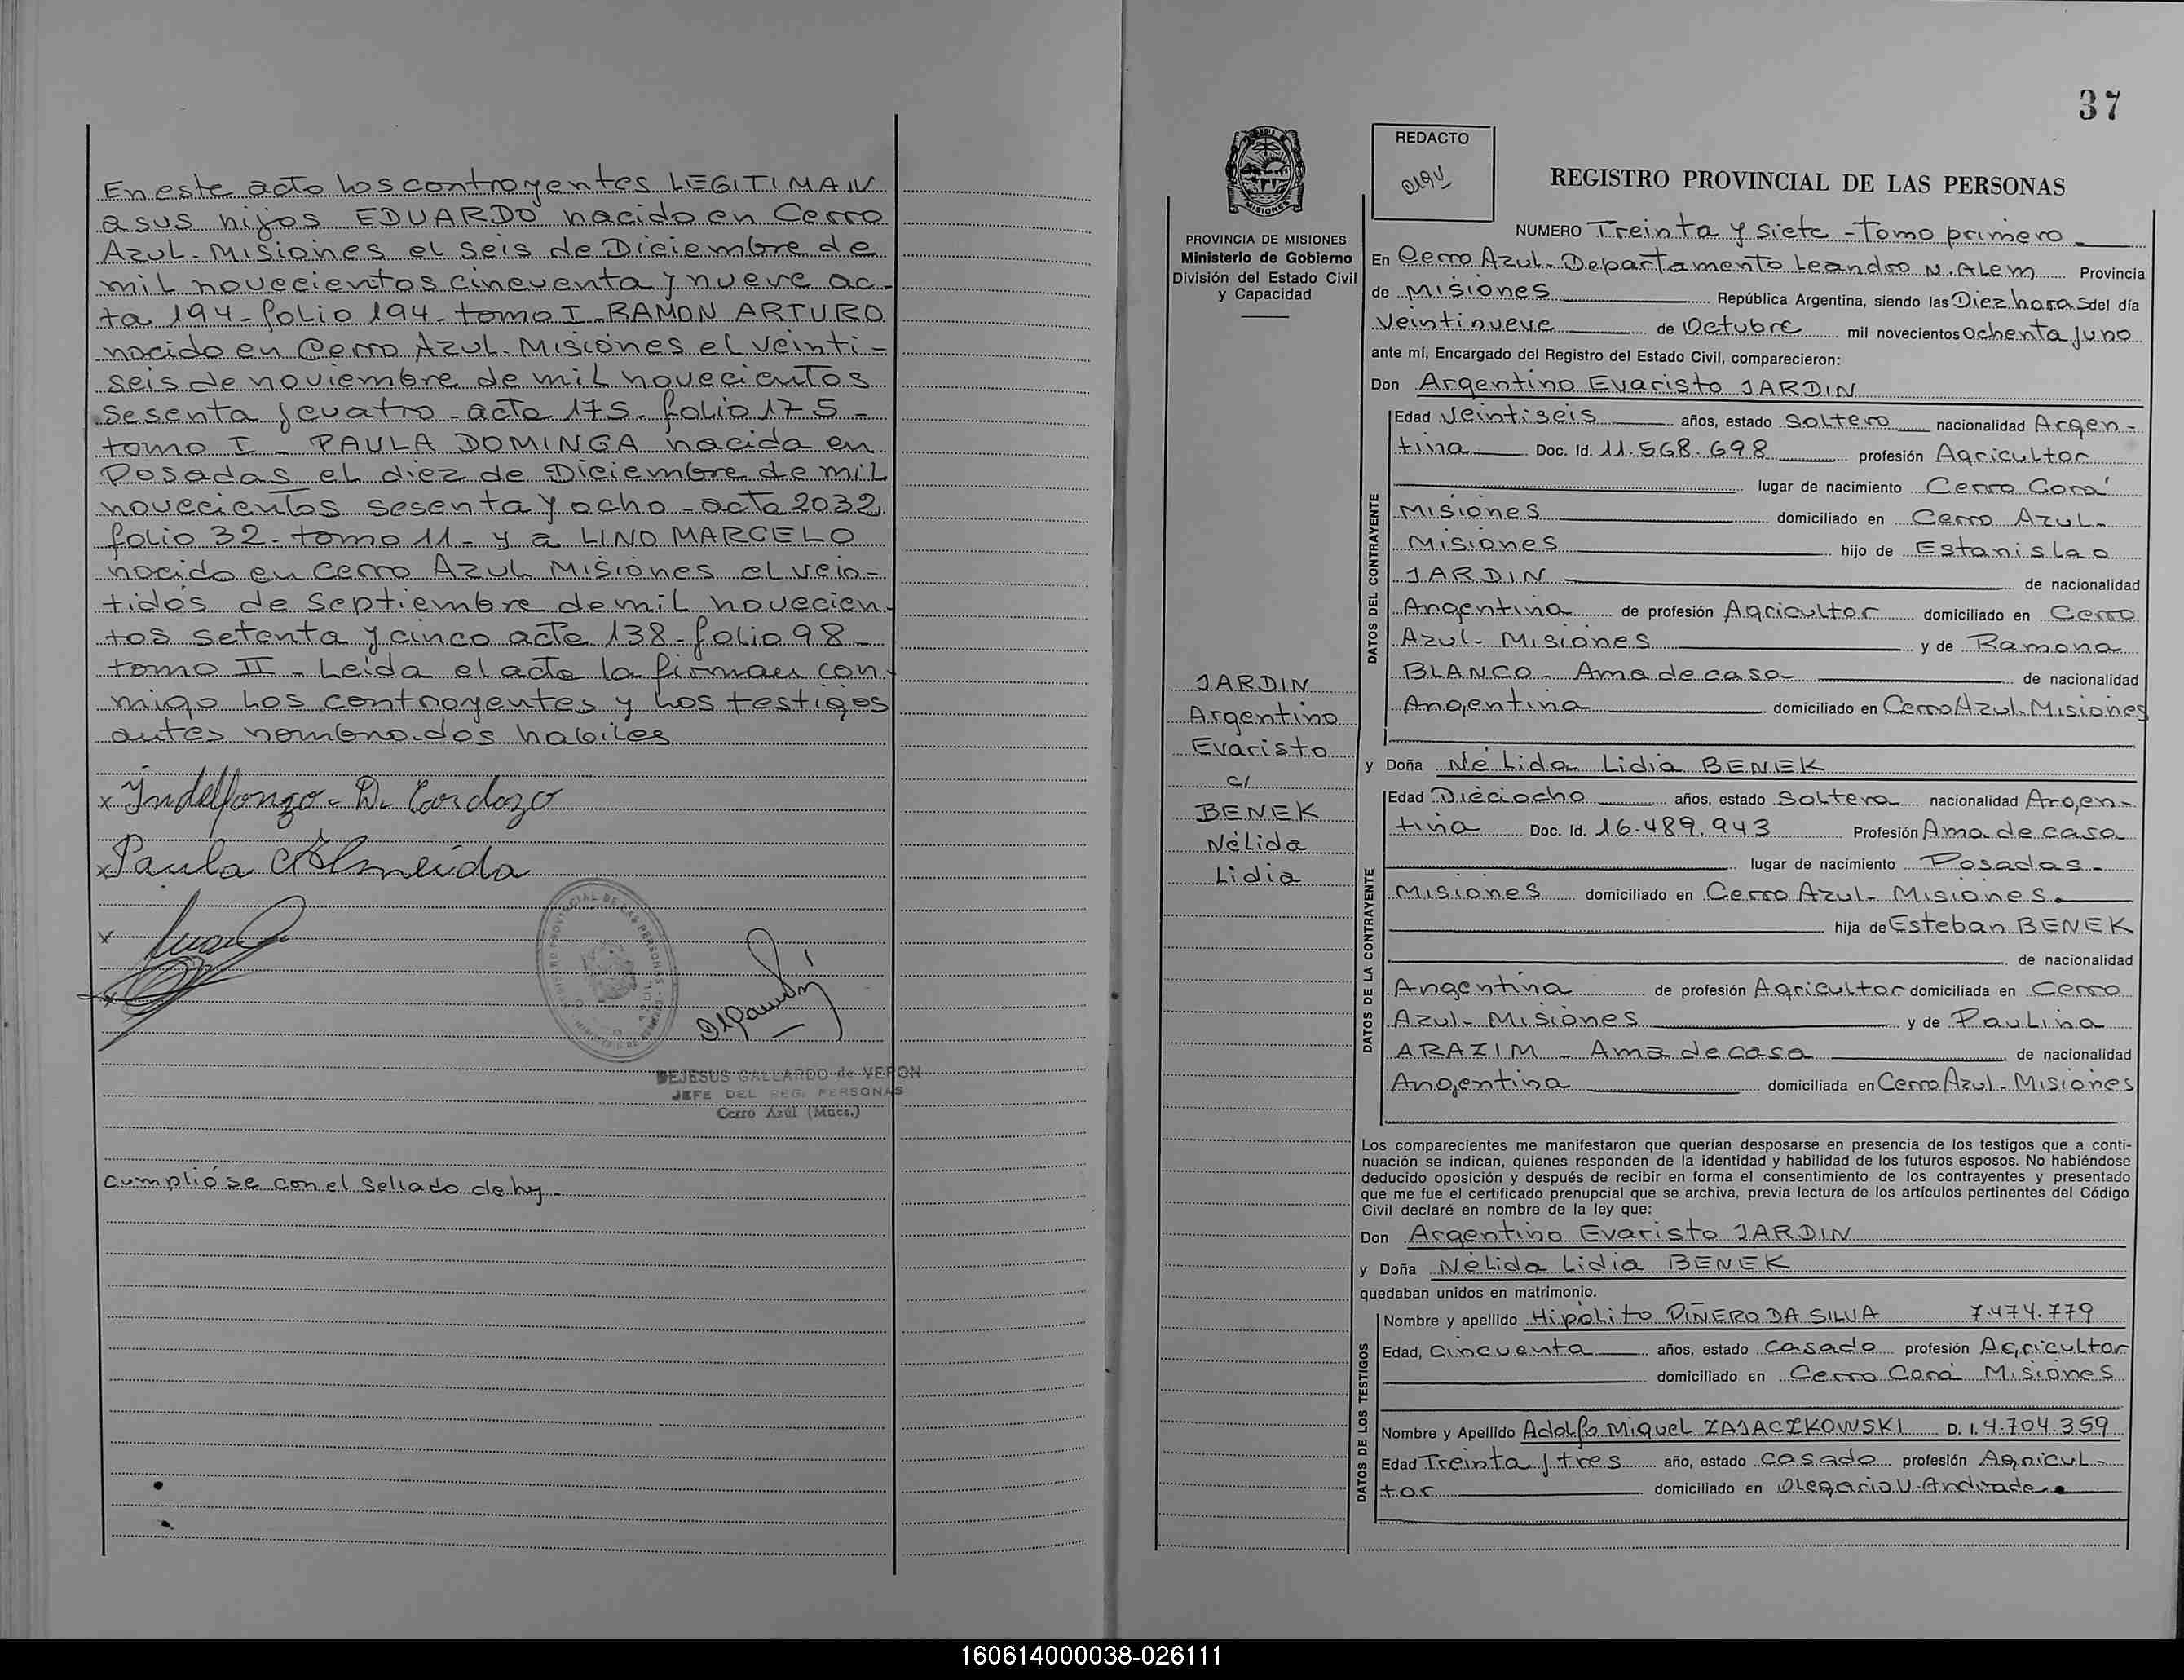 En este acto los contrayentes LEGITIMAN
a sus hijos EDUARDO nacido en Cerro
Azul - Misiones el seis de Diciembre de
mil novecientos cincuenta y nueve ac-
ta 194 - folio 194 - tomo I - RAMON ARTURO
nacido en Cerro Azul - Misiones el veinti-
seis de noviembre de mil novecientos
sesenta y cuatro - acta 175 - folio 175 -
tomo I - PAULA DOMINGA nacida en
Posadas el diez de Diciembre de mil
novecientos sesenta y ocho - acta 2032
folio 32 - tomo 11 - y a LINO MARCELO
nacido en Cerro Azul Misiones el vein-
tidós de Septiembre de mil novecien-
tos setenta y cinco acta 138 - folio 98 -
tomo II - Leida el acta la firman con-
migo los contrayentes y los testigos
antes nombrados habiles
x Indelfonzo - D. Cardozo
x Paula Almeida
x
x
DEJESUS GALLARDO de VERON
JEFE DEL REG. PERSONAS
Cerro Azúl (Mnes.)
Cumplióse con el Sellado de ley -
37
REDACTO
MISIONES
PROVINCIA DE MISIONES
Ministerio de Gobierno
División del Estado Civil
y Capacidad
JARDIN
Argentino
Evaristo
c/
BENEK
Nélida
Lidia
REGISTRO PROVINCIAL DE LAS PERSONAS
NUMERO Treinta y siete - Tomo primero -
En Cerro Azul - Departamento Leandro N. Alem Provincia
de Misiones República Argentina, siendo las Diez horas del día
Veintinueve de Octubre mil novecientos Ochenta y uno
ante mí, Encargado del Registro del Estado Civil, comparecieron:
Don Argentino Evaristo JARDIN
DATOS DEL CONTRAYENTE
Edad Veintiseis años, estado Soltero nacionalidad Argen-
tina Doc. Id. 11.568.698 profesión Agricultor
lugar de nacimiento Cerro Corá
Misiones domiciliado en Cerro Azul -
Misiones hijo de Estanislao
JARDIN de nacionalidad
Argentina de profesión Agricultor domiciliado en Cerro
Azul - Misiones y de Ramona
BLANCO - Ama de casa - de nacionalidad
Argentina domiciliado en Cerro Azul - Misiones
y Doña Nélida Lidia BENEK
DATOS DE LA CONTRAYENTE
Edad Dieciocho años, estado Soltera nacionalidad Argen-
tina Doc. Id. 16.489.943 Profesión Ama de casa
lugar de nacimiento Posadas -
Misiones domiciliado en Cerro Azul - Misiones.
hija de Esteban BENEK
de nacionalidad
Argentina de profesión Agricultor domiciliada en Cerro
Azul - Misiones y de Paulina
ARAZIM - Ama de casa de nacionalidad
Argentina domiciliada en Cerro Azul - Misiones
Los comparecientes me manifestaron que querían desposarse en presencia de los testigos que a conti-
nuación se indican, quienes responden de la identidad y habilidad de los futuros esposos. No habiéndose
deducido oposición y después de recibir en forma el consentimiento de los contrayentes y presentado
que me fue el certificado prenupcial que se archiva, previa lectura de los artículos pertinentes del Código
Civil declaré en nombre de la ley que:
Don Argentino Evaristo JARDIN
y Doña Nélida Lidia BENEK
quedaban unidos en matrimonio.
DATOS DE LOS TESTIGOS
Nombre y apellido Hipólito PIÑERO DA SILVA 7.474.779
Edad, Cincuenta años, estado Casado profesión Agricultor
domiciliado en Cerro Corá Misiones
Nombre y Apellido Adolfo Miguel ZAJACZKOWSKI D. I. 4.704.359
Edad Treinta y tres año, estado Casado profesión Agricul-
tor domiciliado en Olegario V. Andrade.
160614000038-026111